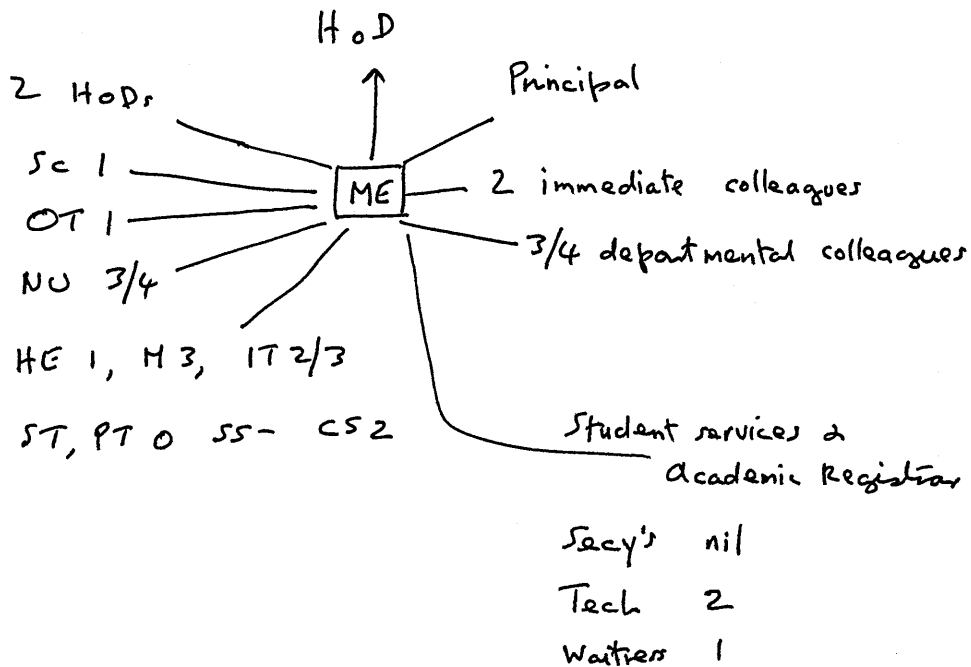 HoD
2 HoDs
Principal
Sc 1
ME
2 immediate colleagues
OT 1
3/4 departmental colleagues
NU 3/4
HE 1, M 3, IT 2/3
ST, PT 0 SS- CS2
Student services &
Academic Registrar
Secy's nil
Tech 2
Waitress 1